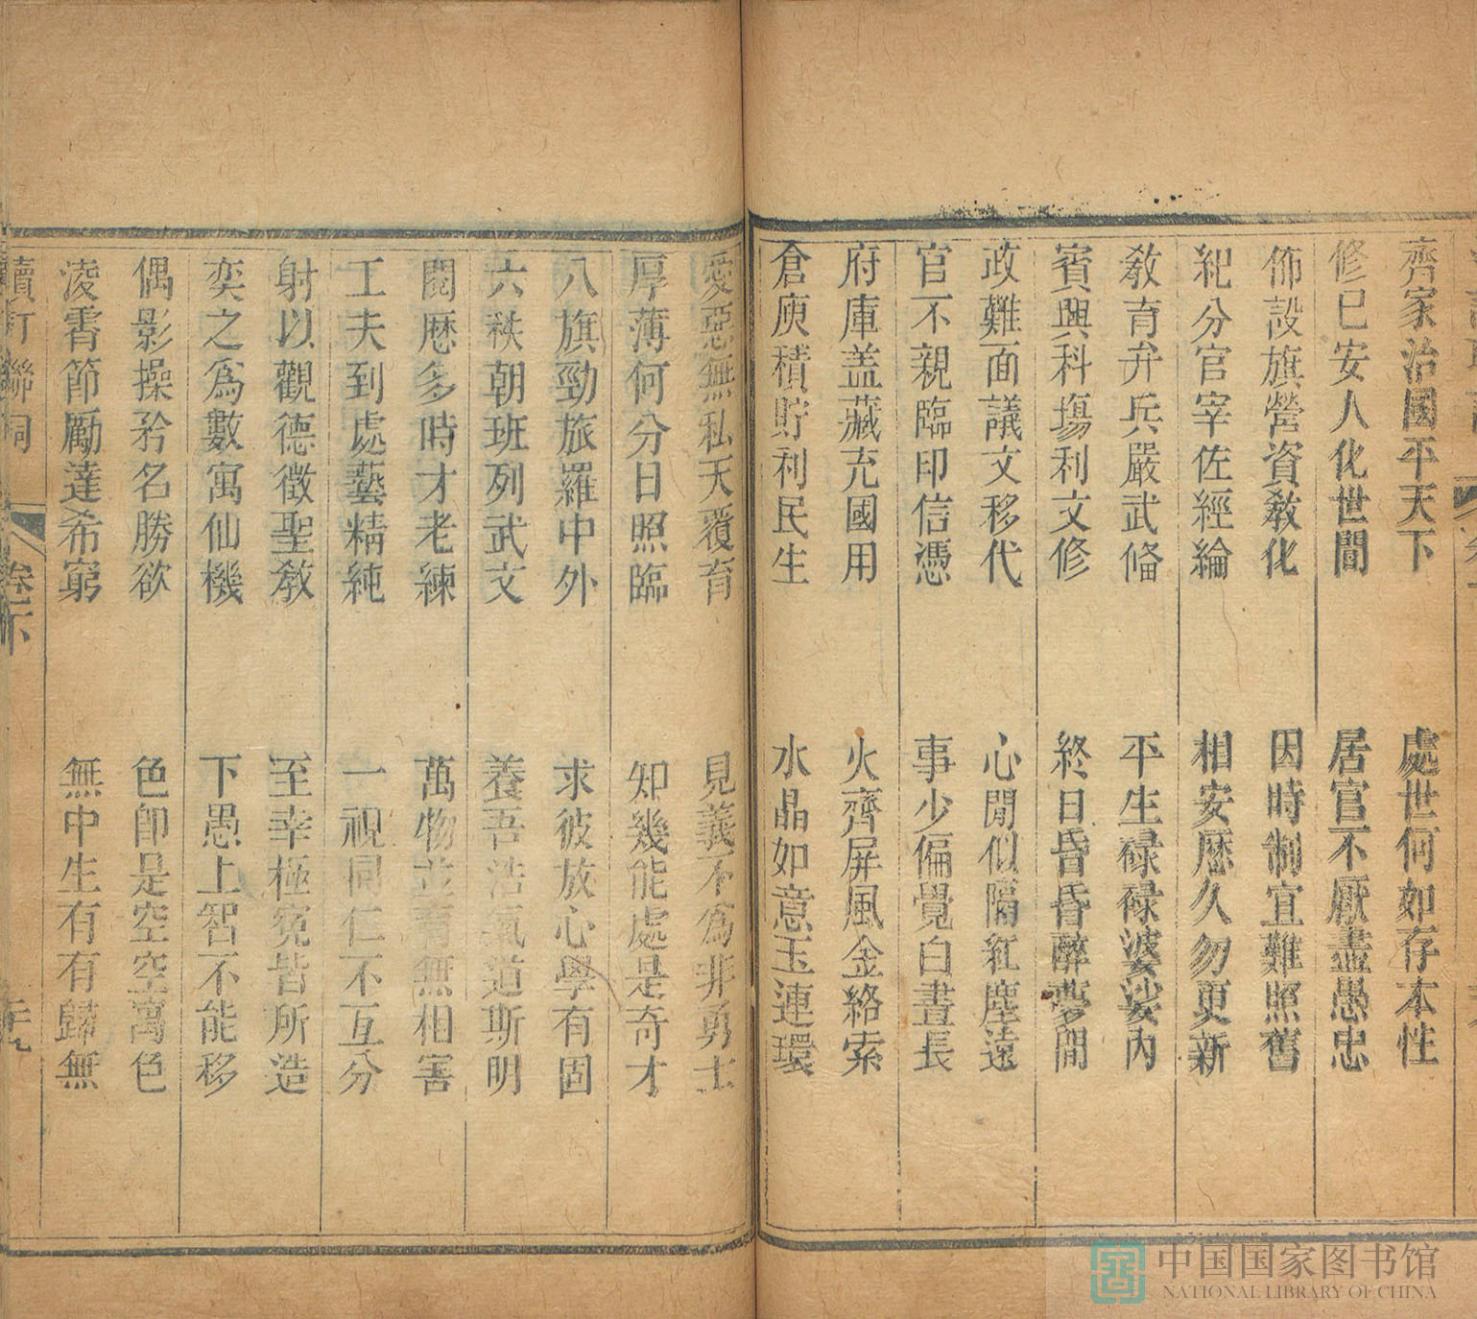 齊家治國平天下 處世何如存本性
修已安人化世間 居官不厭盡愚忠
佈設旗營資敎化 因時制宜難照舊
紀分官宰佐經綸 相安歷久勿更新
敎育弁兵嚴武偹 平生碌碌婆娑內
賓興科塲利文修 終日昏昏醉夢間
政難面議文移代 心閒似隔紅塵遠
官不親臨印信憑 事少偏覺白晝長
府庫盖藏充國用 火齊屏風金絡索
倉庾積貯利民生 水晶如意玉連環
愛惡無私天覆育 見義不為非勇士
厚薄何分日照臨 知幾能處是奇才
八旗勁旅羅中外 求彼放心學有固
六秩朝班列武文 養吾浩氣道斯明
閱歷多時才老練 萬物並育無相害
工夫到處藝精純 一視同仁不互分
射以觀德徵聖敎 至幸極寃皆所造
奕之為數寓仙機 下愚上智不能移
偶影操矜名勝欲 色卽是空空寓色
淩霄節勵達希窮 無中生有有歸無
續訂聯詞 卷下
中国国家图书馆
NATIONAL LIBRARY OF CHINA